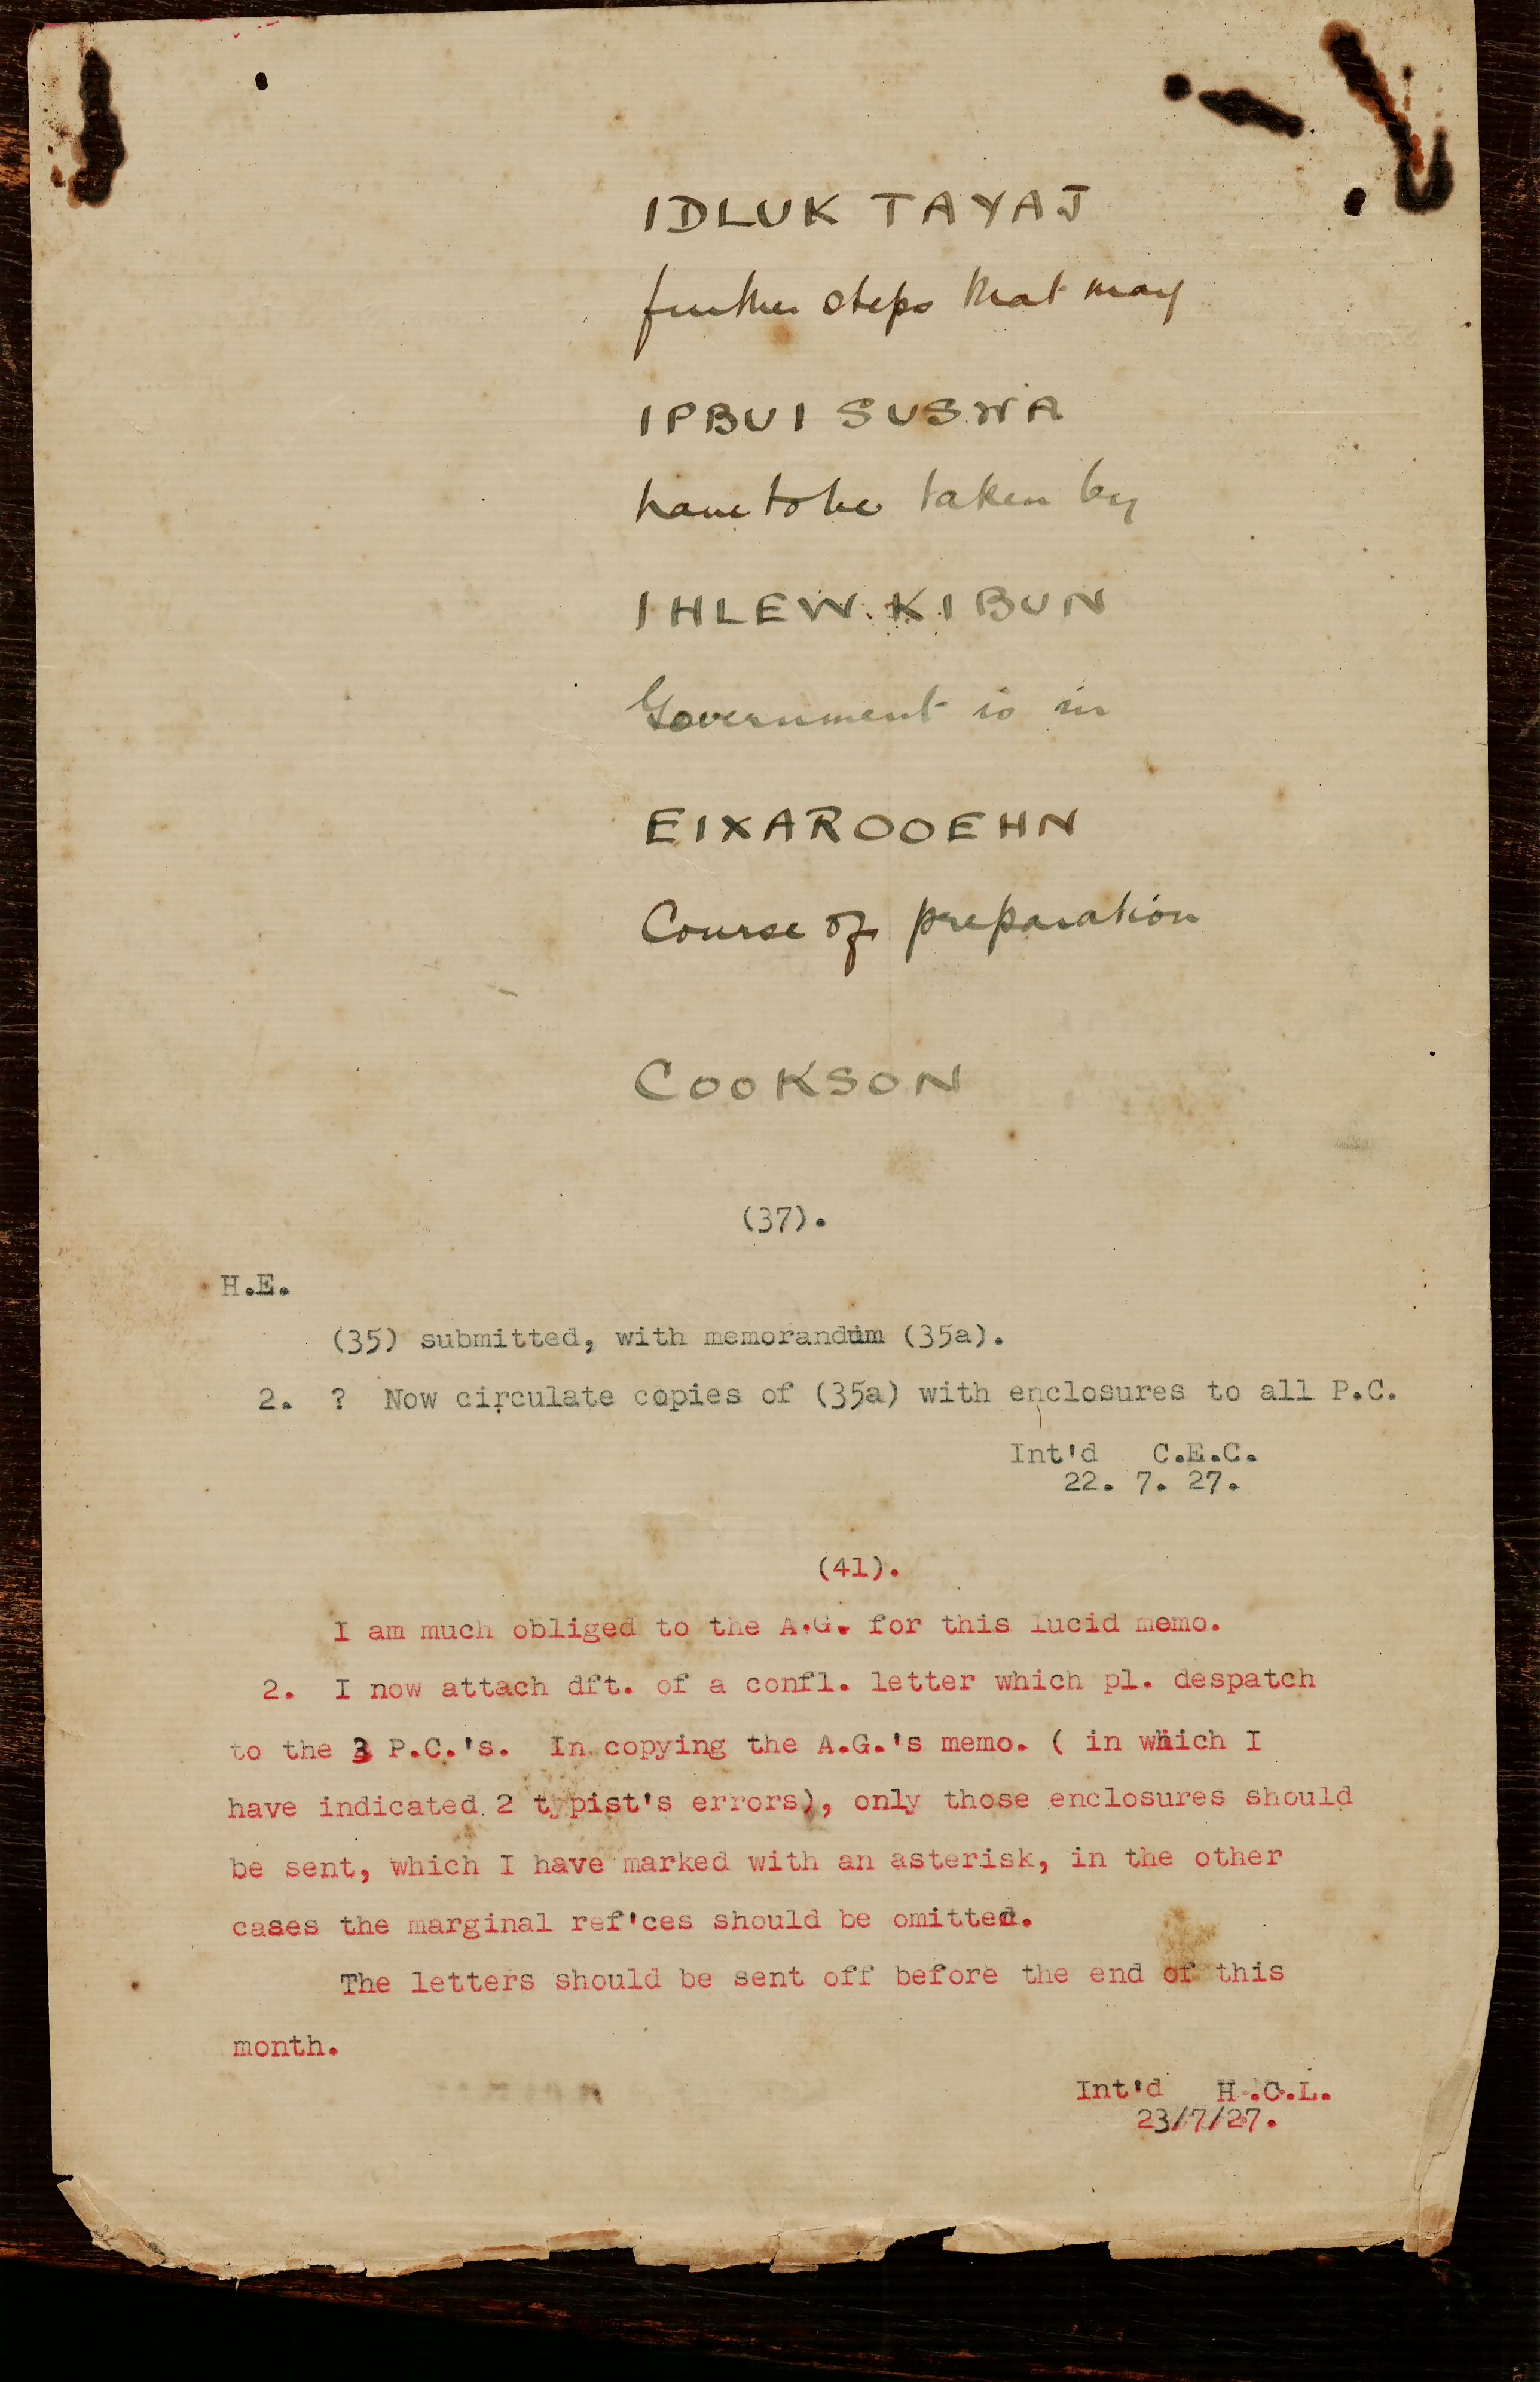 IDLUK TAYAJ
further steps that may
IPBUI SUSWA
have to be taken by
IHLEW KIBUN
Government is in
EIXAROOEHN
Course of preparation
COOKSON
(37).
H.E.
(35) submitted, with memorandum (35a).
2. ? Now circulate copies of (35a) with enclosures to all P.C.
Int'd C.E.C.
22. 7. 27.
(41).
I am much obliged to the A.G. for this lucid memo.
2. I now attach dft. of a confl. letter which pl. despatch
to the 3 P.C.'s. In copying the A.G.'s memo. ( in which I
have indicated 2 typist's errors), only those enclosures should
be sent, which I have marked with an asterisk, in the other
cases the marginal ref'ces should be omitted.
The letters should be sent off before the end of this
month.
Int'd H.C.L.
23/7/27.